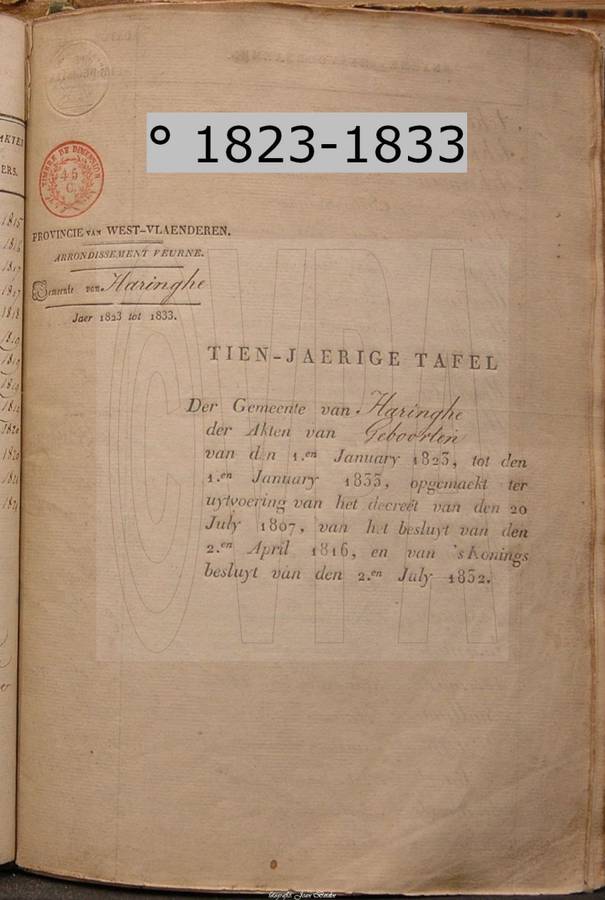 ° 1823-1833
TIMBRE DE DIMENSION
45
C.
AKTEN
ERS.
1815
1816
1817
1817
1818
1819
PROVINCIE VAN WEST-VLAENDEREN.
ARRONDISSEMENT VEURNE.
Gemeente van Haringhe
Jaer 1823 tot 1833.
TIEN-JAERIGE TAFEL
Der Gemeente van Haringhe
der Akten van Geboorten
van den 1.en January 1823, tot den
1.en January 1833, opgemaekt ter
uytvoering van het decreèt van den 20
July 1807, van het besluyt van den
2.en April 1816, en van 's Konings
besluyt van den 2.en July 1832.
©VVFA